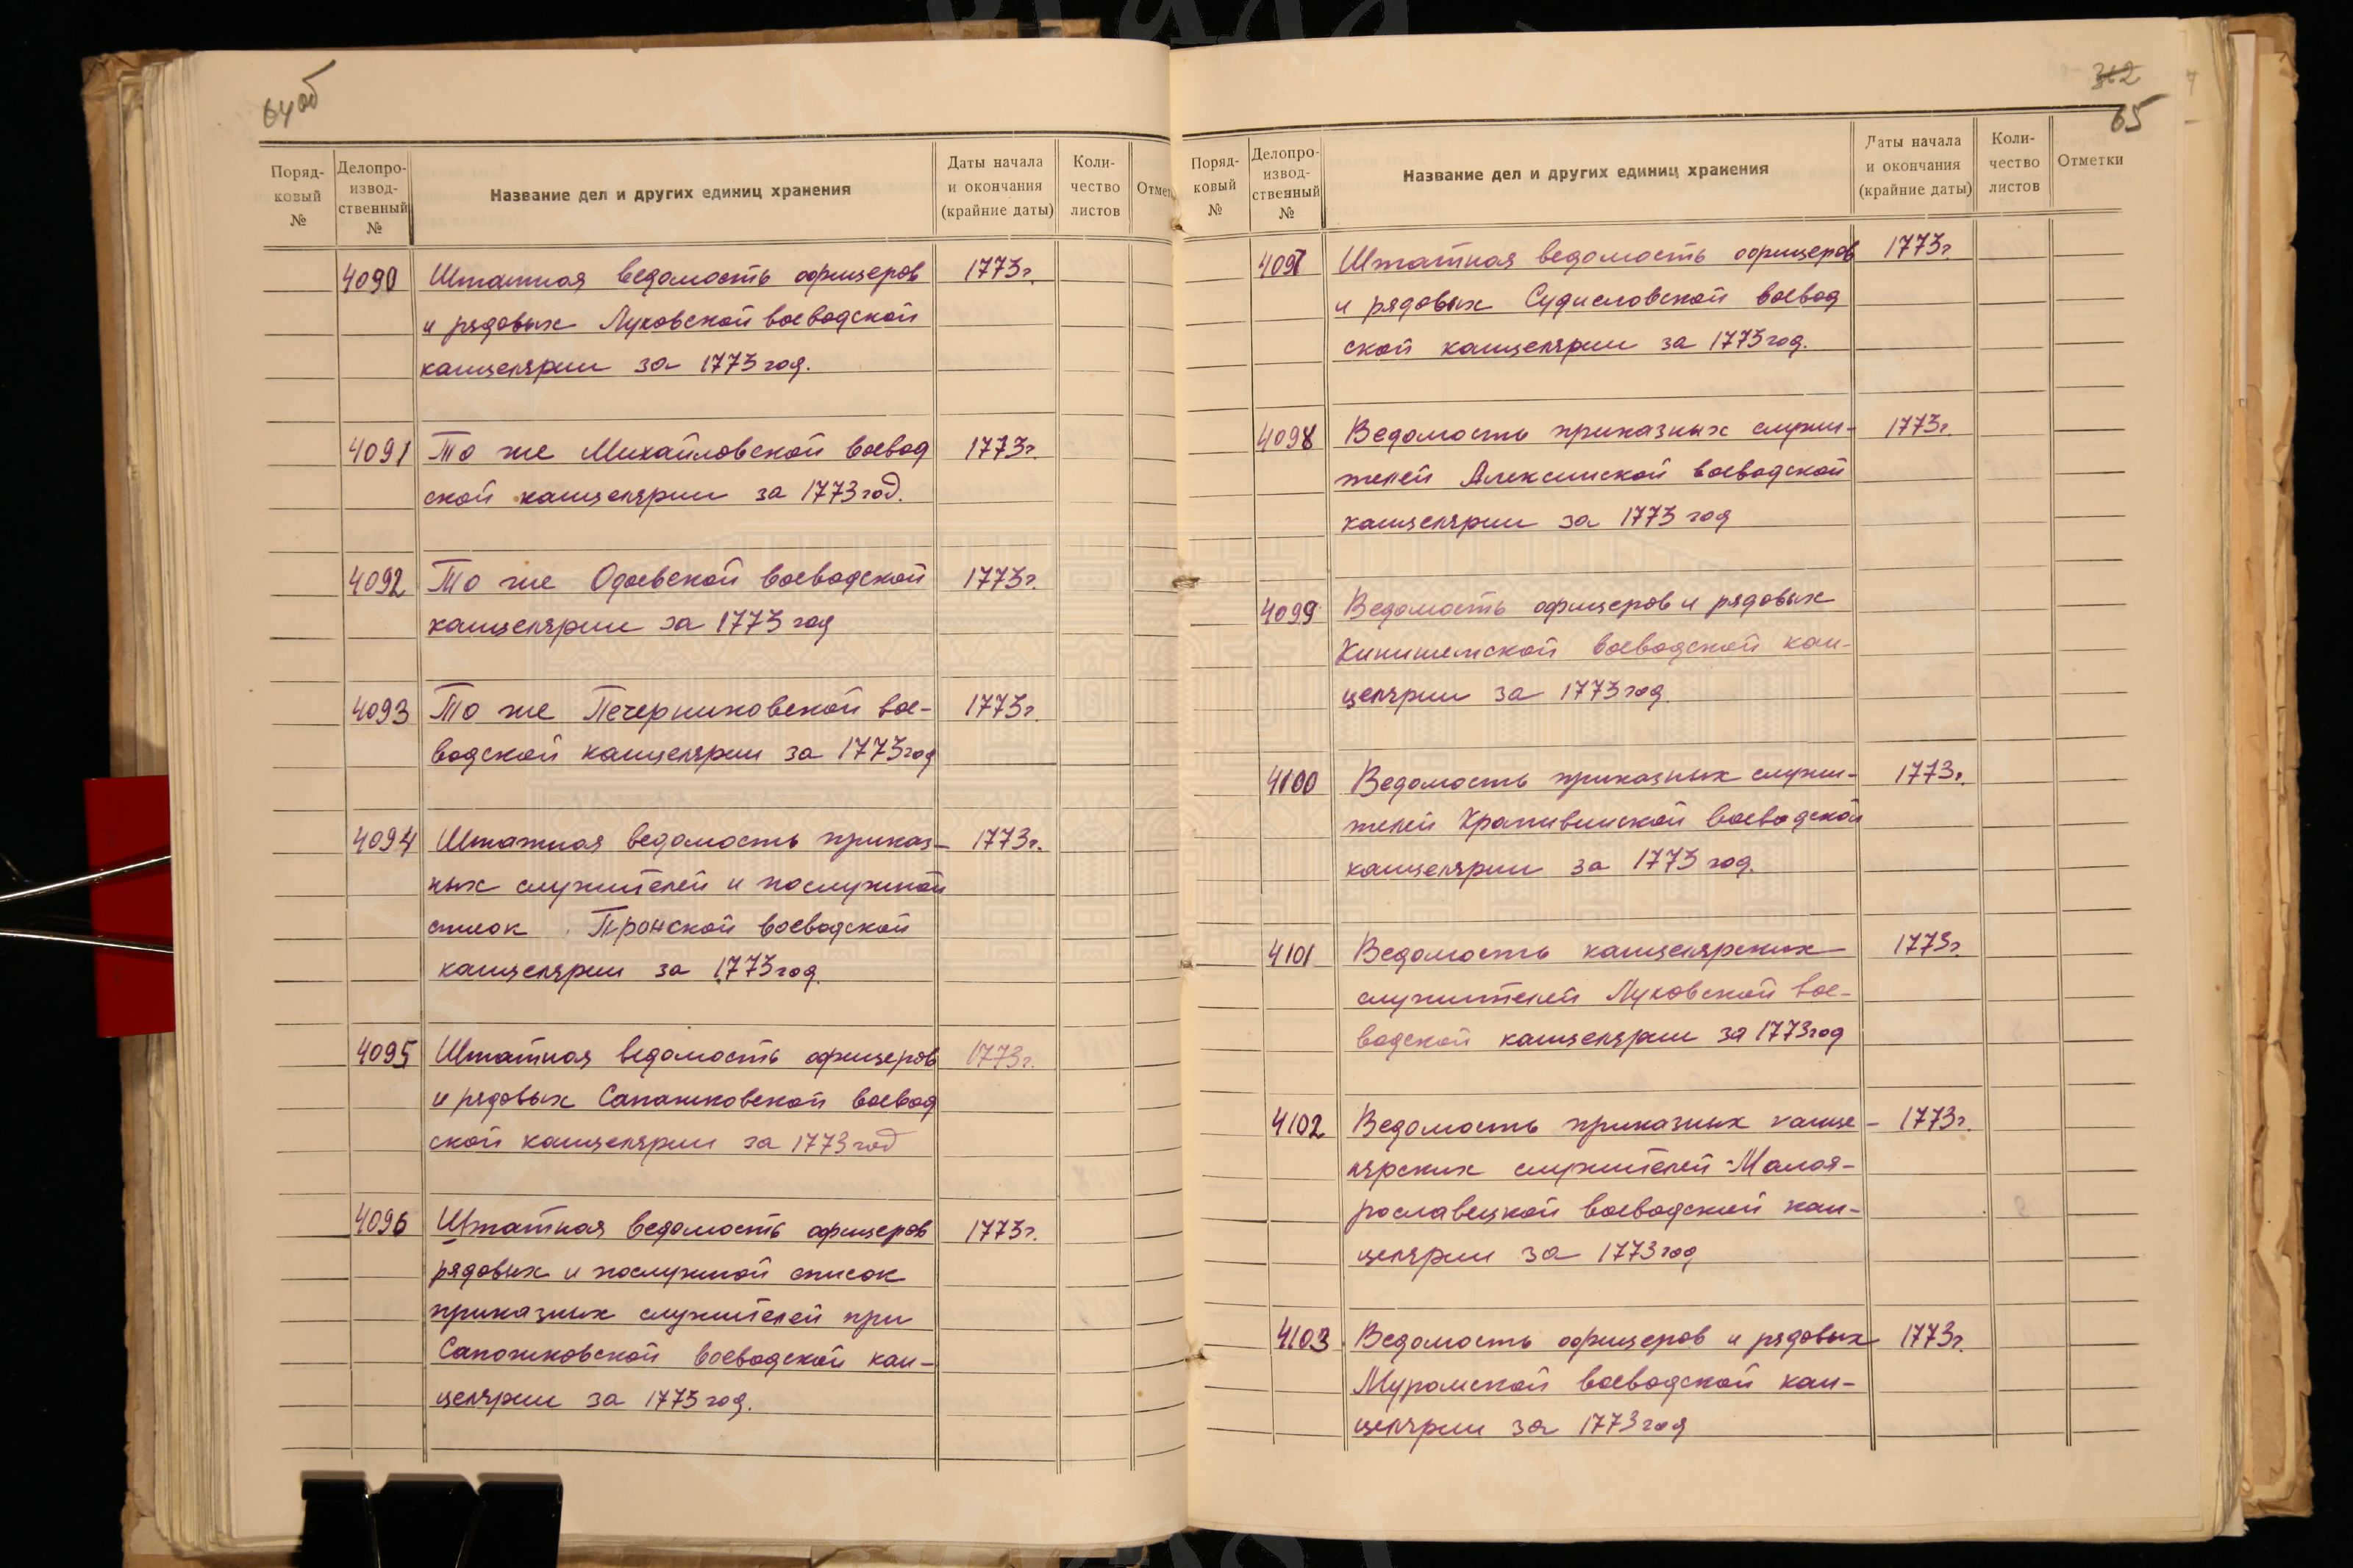 64об
Поряд-
ковый
№
Делопро-
извод-
ственный
№
Название дел и других единиц хранения
Даты начала
и окончания
(крайние даты)
Коли-
чество
листов
Отмет
4090 Штатная ведомость офицеров 1773г.
и рядовых Луховской воеводской
канцелярии за 1773 год.
4091 То же Михайловской воевод 1773г.
ской канцелярии за 1773 год.
4092 То же Одоевской воеводской 1773г.
канцелярии за 1773 год
4093 То же Печерниковской вое- 1773г.
водской канцелярии за 1773 год
4094 Штатная ведомость приказ- 1773г.
ных служителей и послужной
список Пронской воеводской
канцелярии за 1773 год.
4095 Штатная ведомость офицеров 1773г.
и рядовых Сапожковской воевод
ской канцелярии за 1773 год
4096 Штатная ведомость офицеров 1773г.
рядовых и послужной список
приказных служителей при
Сапожковской воеводской кан-
целярии за 1773 год.
362
65
Поряд-
ковый
№
Делопро-
извод-
ственный
№
Название дел и других единиц хранения
Даты начала
и окончания
(крайние даты)
Коли-
чество
листов
Отметки
4097 Штатная ведомость офицеров 1773г.
и рядовых Судисловской воевод
ской канцелярии за 1773 год.
4098 Ведомость приказных служи- 1773г.
телей Алексинской воеводской
канцелярии за 1773 год
4099 Ведомость офицеров и рядовых
Кинишемской воеводской кан-
целярии за 1773 год
4100 Ведомость приказных служи- 1773г.
телей Крапивинской воеводской
канцелярии за 1773 год.
4101 Ведомость канцелярских 1773г.
служителей Луховской вое-
водской канцелярии за 1773 год
4102 Ведомость приказных канце- 1773г.
лярских служителей Малоя-
рославецкой воеводской кан-
целярии за 1773 год
4103 Ведомость офицеров и рядовых 1773г.
Муромской воеводской кан-
целярии за 1773 год